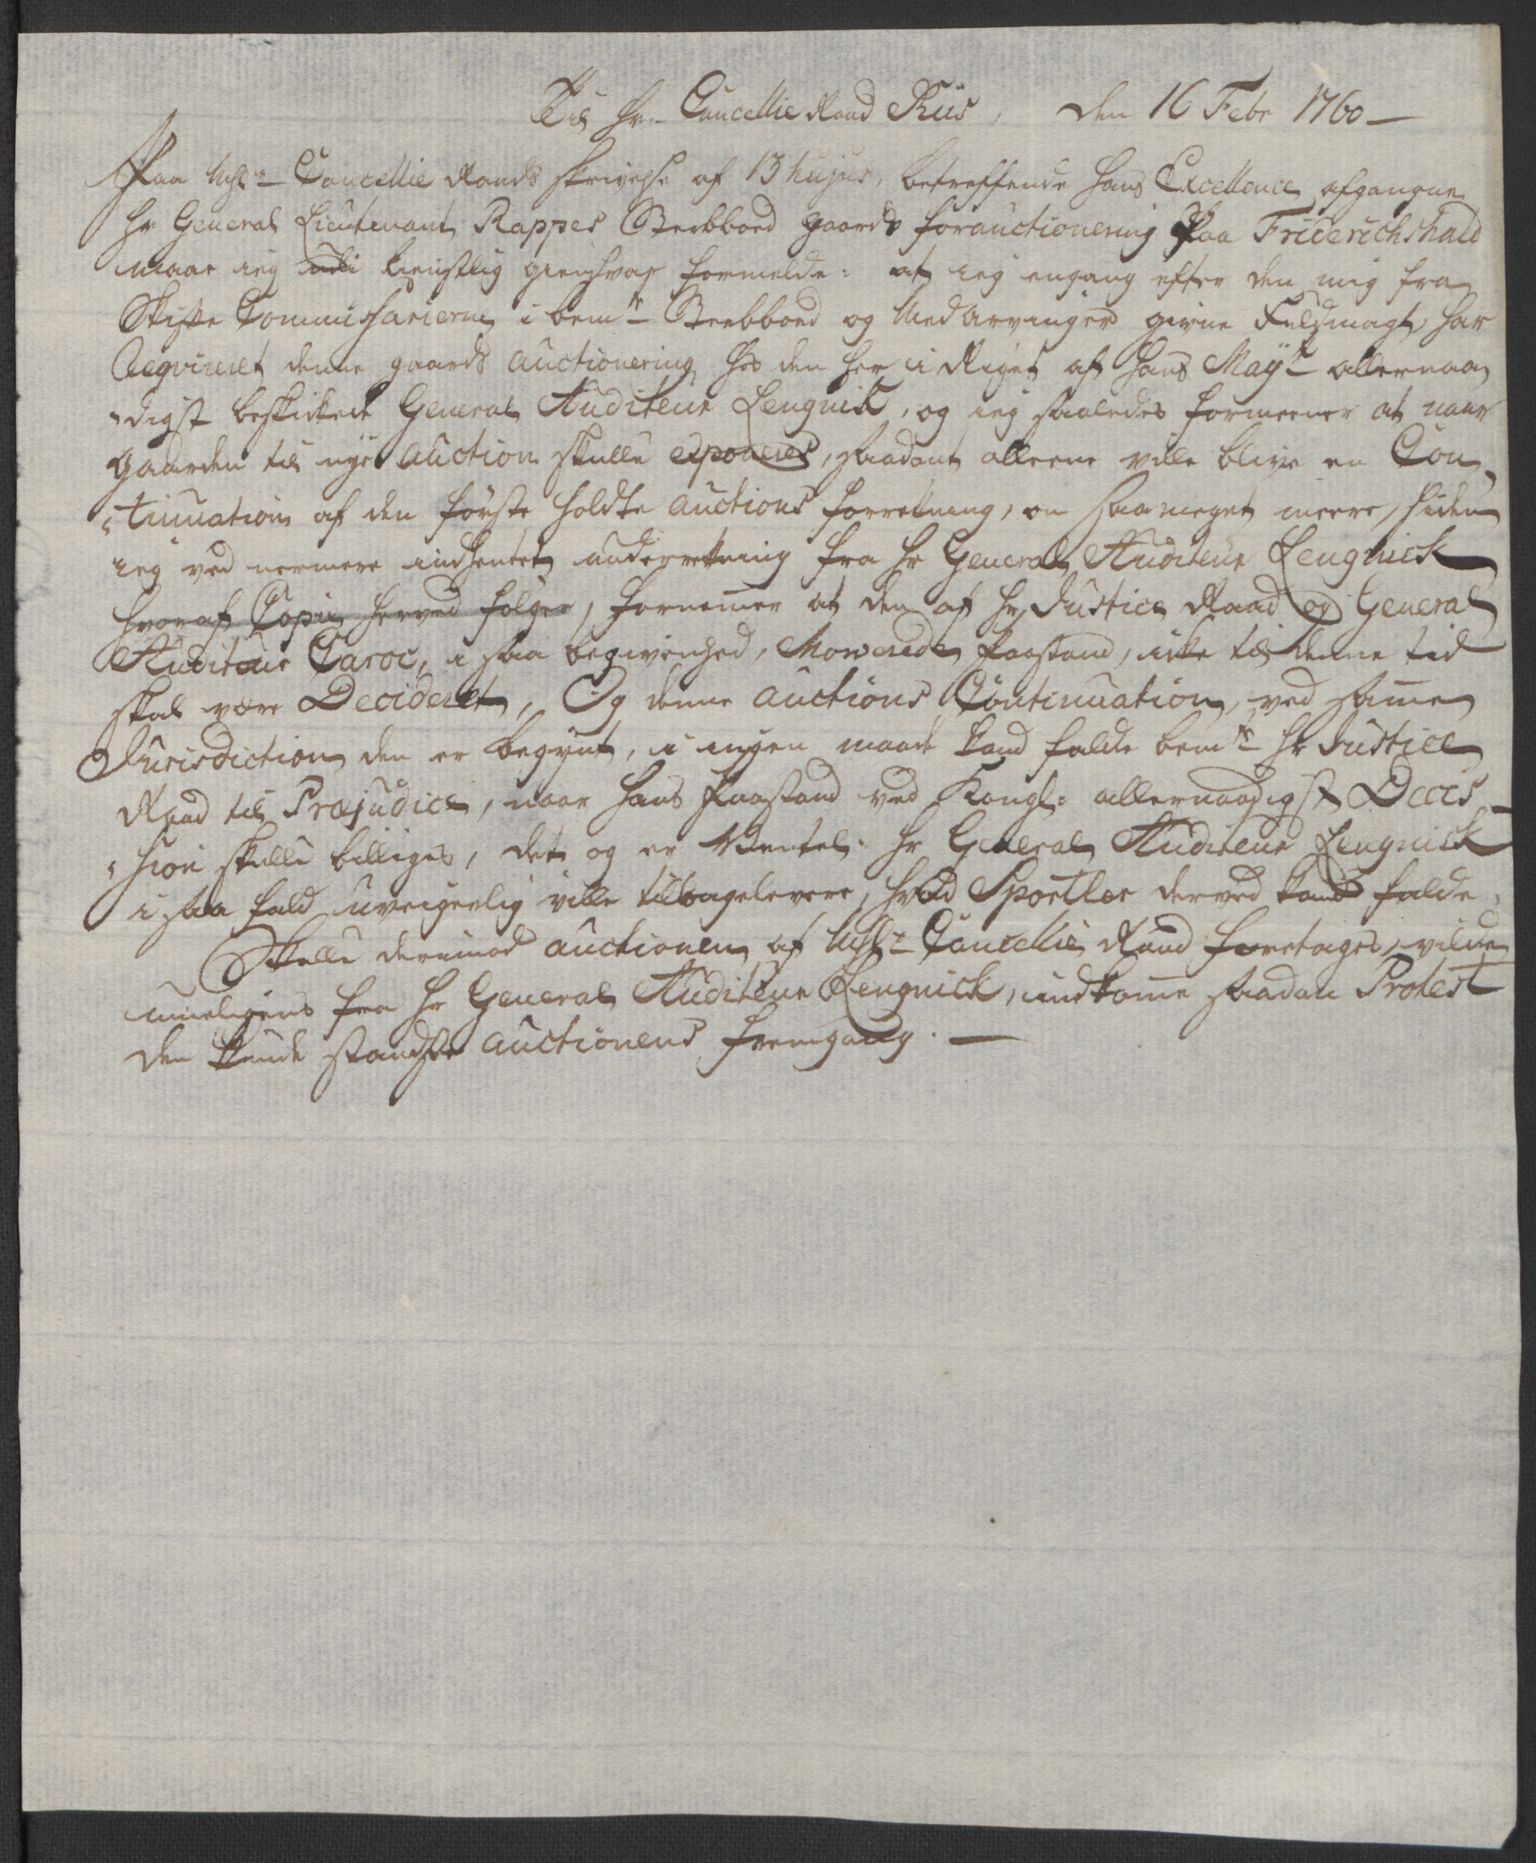 Til Hr. Cancellie Raad Rüs, den 16 Febr 1760 —
Paa Cancellie Raads skrivelse af 13 hujus, betreffende Hans Excellence afgangne
Hr General Lieutenant Rappes Sterbboed gaards forauctionering paa Friderichshald
maae ieg tienstlig giensvar formelde: at ieg engang efter den mig fra
Skifte Commissarierne i bemte Sterbboed og Med Arvinger givne Fuldmagt, har
Reqvireret denne gaards auctionering hos den her i Riget af Hans Mayt allernaa
„digst beskikkede General Auditeur Lengnik, og ieg saaledes formeener at naar
gaarden til nye auction skulle exponeres, saadant alleene ville blive en Con„
„tinuation af den første holdte auctions forretning, en saa meget meere, siden
ieg ved nermere indhentet underretning fra Hr General Auditeur Lengnick
hvoraf Copie herved følger, fornemer at den af Hr Justice Raad og General
Auditeur Caroc, i saa begivenhed, Moverede paastand, ikke til denne tid
skal være Decideret, Og denne auctions Continuation, ved same
Jurisdiction den er begynt, i ingen maade kand falde bemte Hr Justice
Raad til Præjudice, naar Hans paastand ved Kongl: allernaadigst Decis„
„sion skulle billiges, det og er Ventel: Hr General Auditeur Lengnick
i saa fald uveigerlig ville tilbagelevere, hvad Sportler derved kand falde.
Skulle derimod auctionen af Cancellie Raad foretages, vilde
mueligens fra Hr General Auditeur Lengnick, indkome saadan Protest
den kunde standse auctionens fremgang. —